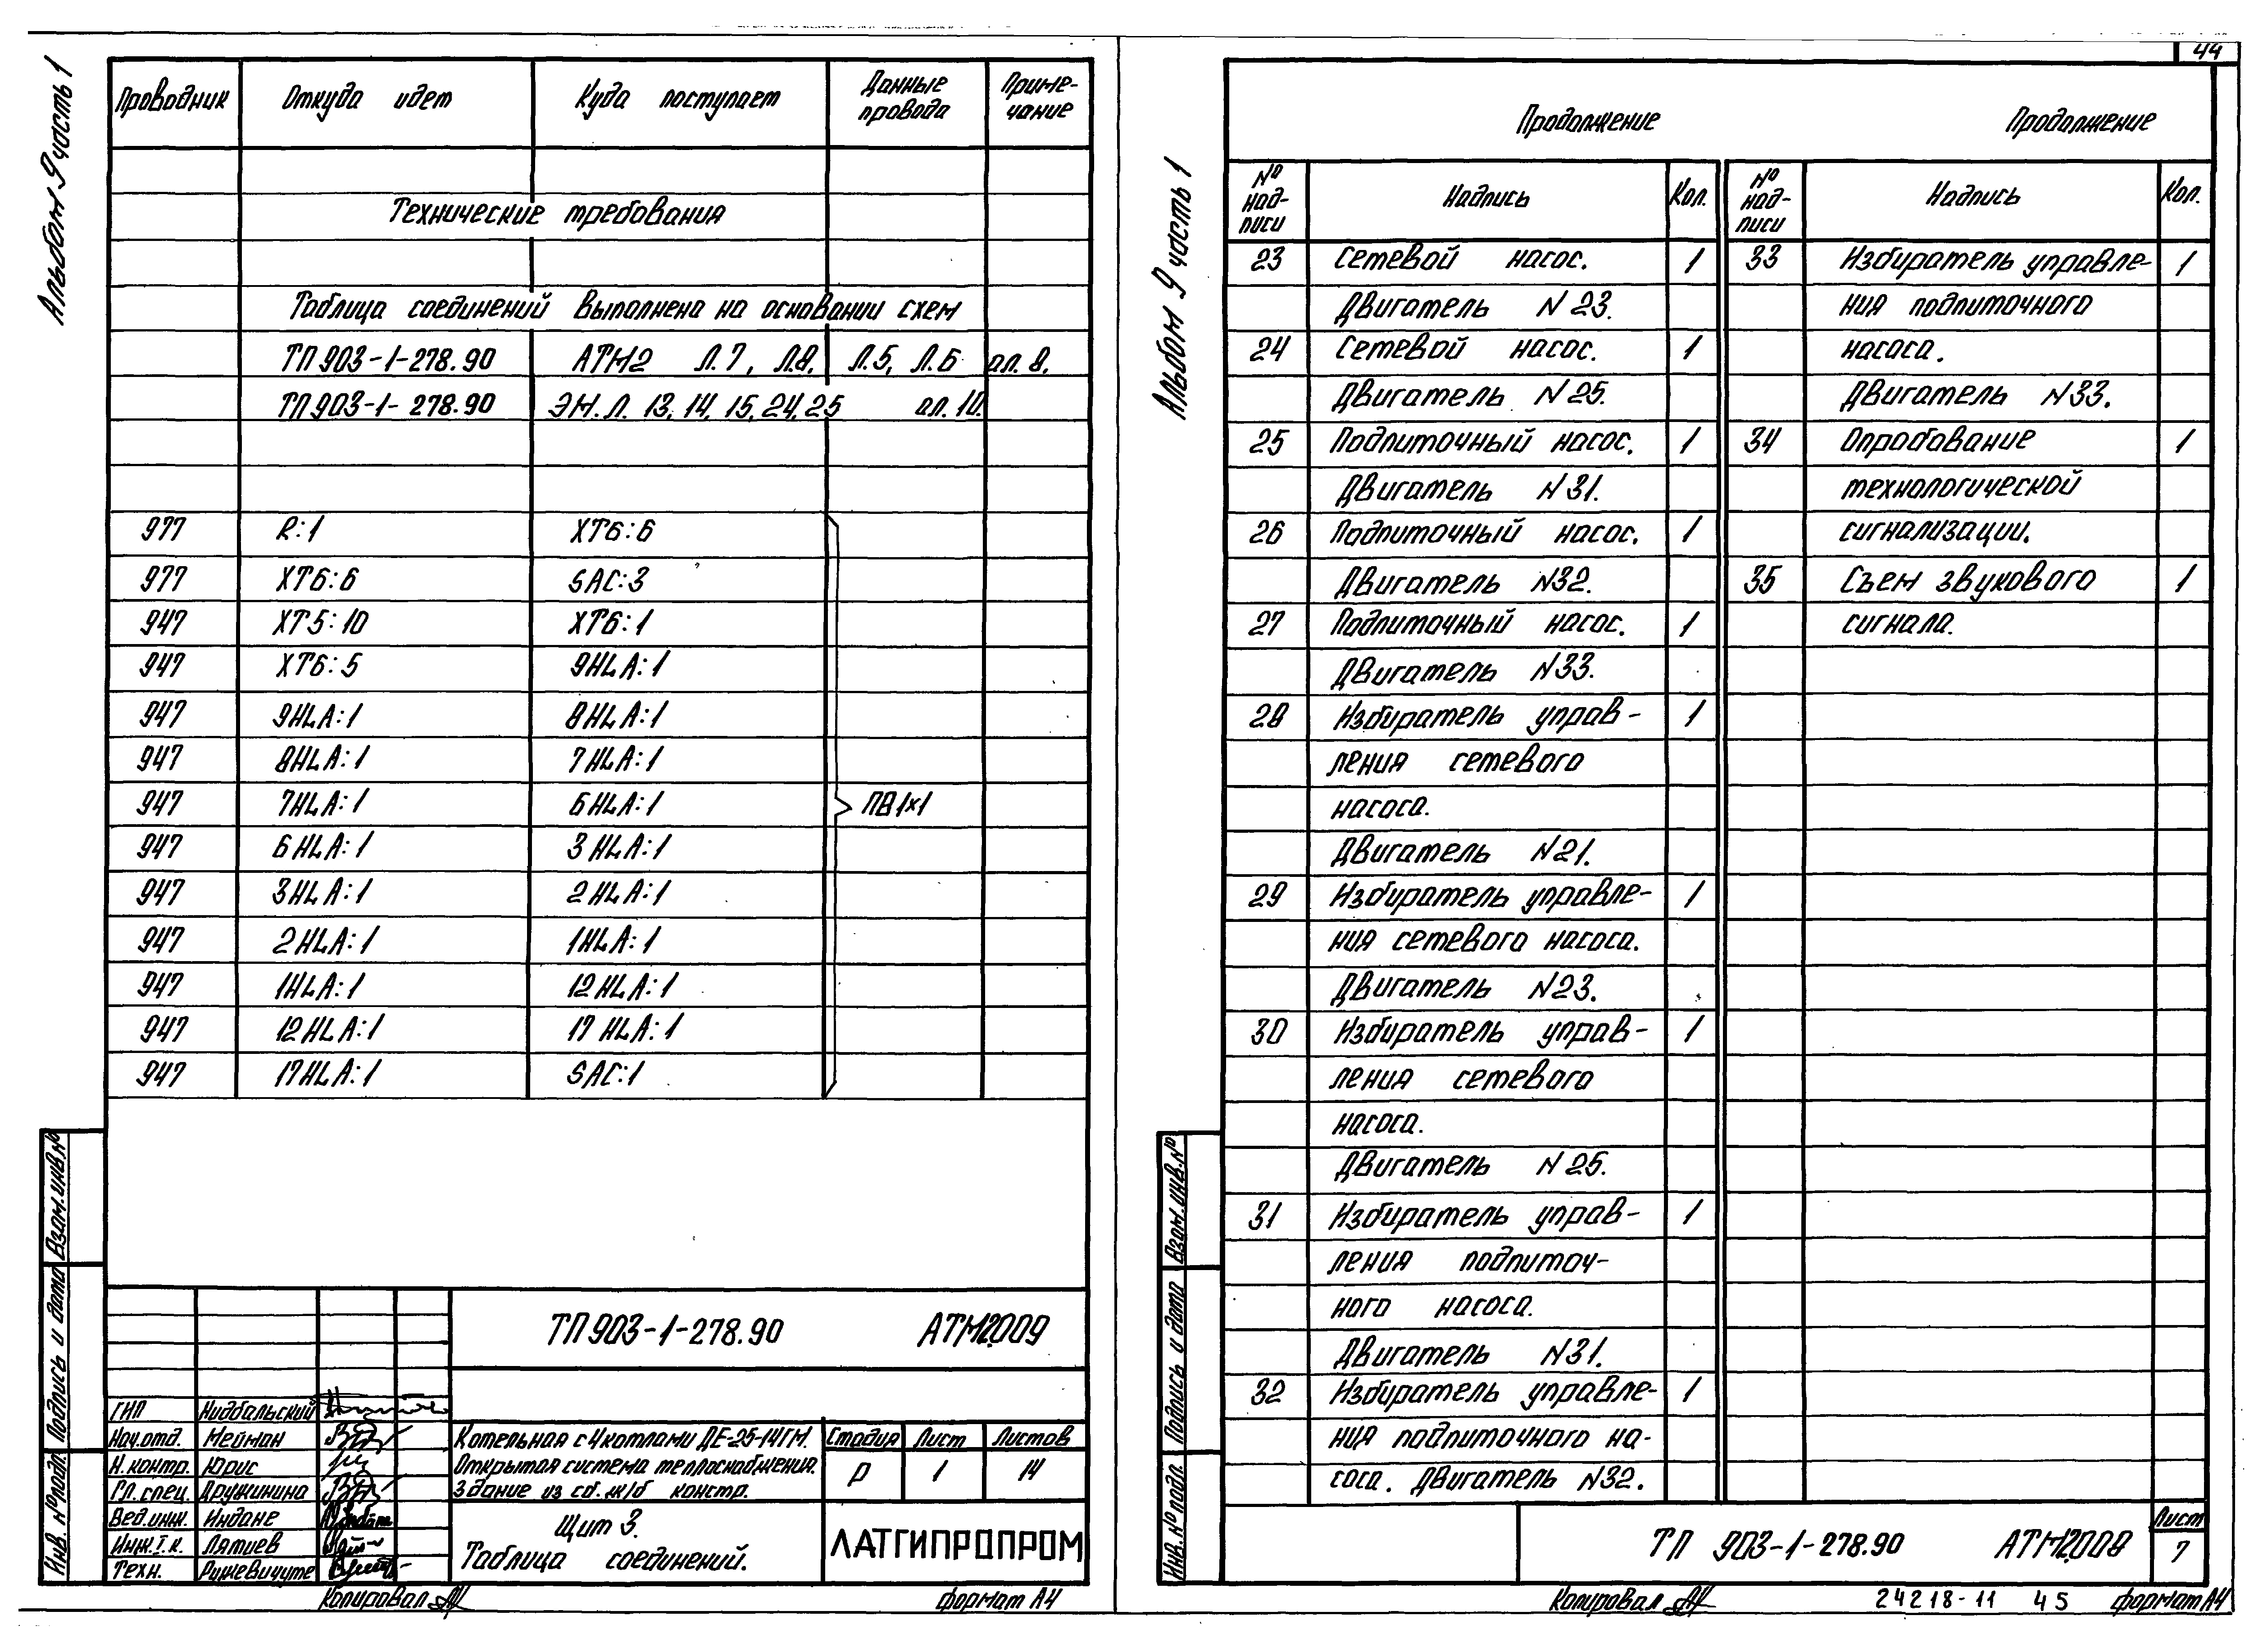 Альбом 9 часть 1
Проводник Откуда идет Куда поступает Данные провода Приме-чание
Технические требования
Таблица соединений выполнена на основании схем
ТП 903-1-278.90 АТМ2 Л.7, Л.8, Л.5, Л.6 ал. 8.
ТП 903-1-278.90 ЭМ. Л. 13, 14, 15, 24, 25 ал. 10.
977 R:1 ХТ6:6
977 ХТ6:6 SAC:3
947 ХТ5:10 ХТ6:1
947 ХТ6:5 9HLA:1
947 9HLA:1 8HLA:1
947 8HLA:1 7HLA:1
947 7HLA:1 6HLA:1 ПВ1х1
947 6HLA:1 3HLA:1
947 3HLA:1 2HLA:1
947 2HLA:1 1HLA:1
947 1HLA:1 12HLA:1
947 12HLA:1 17HLA:1
947 17HLA:1 SAC:1
Взам. инв. №
Подпись и дата
Инв. № подл.
ТП 903-1-278.90 АТМ2.009
ГИП Нидбальский
Нач. отд. Мейман
Н. контр. Юрис
Гл. спец. Дружинина
Вед. инж. Индане
Инж. I. к. Лятиев
Техн. Ружевичуте
Котельная с 4 котлами ДЕ-25-14ГМ.
Открытая система теплоснабжения.
Здание из сб. ж/б констр.
Стадия Лист Листов
Р 1 14
Щит 3.
Таблица соединений.
ЛАТГИПРОПРОМ
Копировал формат А4
44
Альбом 9 часть 1
Продолжение Продолжение
№ над-писи Надпись Кол. № над-писи Надпись Кол.
23 Сетевой насос. 1
Двигатель N 23.
24 Сетевой насос. 1
Двигатель N 25.
25 Подпиточный насос. 1
Двигатель N 31.
26 Подпиточный насос. 1
Двигатель N32.
27 Подпиточный насос. 1
Двигатель N33.
28 Избиратель управ- 1
ления сетевого
насоса.
Двигатель N21.
29 Избиратель управле- 1
ния сетевого насоса.
Двигатель N23.
30 Избиратель управ- 1
ления сетевого
насоса.
Двигатель N 25.
31 Избиратель управ- 1
ления подпиточ-
ного насоса.
Двигатель N31.
32 Избиратель управле- 1
ния подпиточного на-
соса. Двигатель N32.
33 Избиратель управле- 1
ния подпиточного
насоса.
Двигатель N33.
34 Опробование 1
технологической
сигнализации.
35 Съем звукового 1
сигнала.
Взам. инв. №
Подпись и дата
Инв. № подл.
ТП 903-1-278.90 АТМ2.008
Лист
7
Копировал 24218-11 45 формат А4